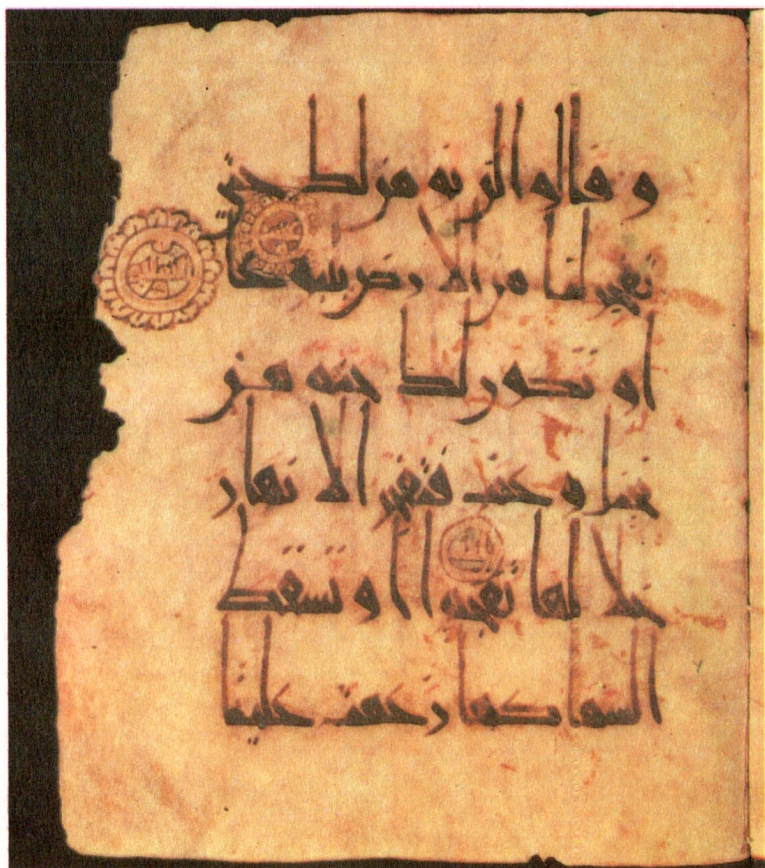 و قالوا لن نؤمن لك حتى
تفجر لنا من الارض ينبوعا
او تكون لك جنة من
نخيل و عنب فتفجر الا نهار
خلا لها تفجيرا ا و تسقط
السما كما زعمت علينا